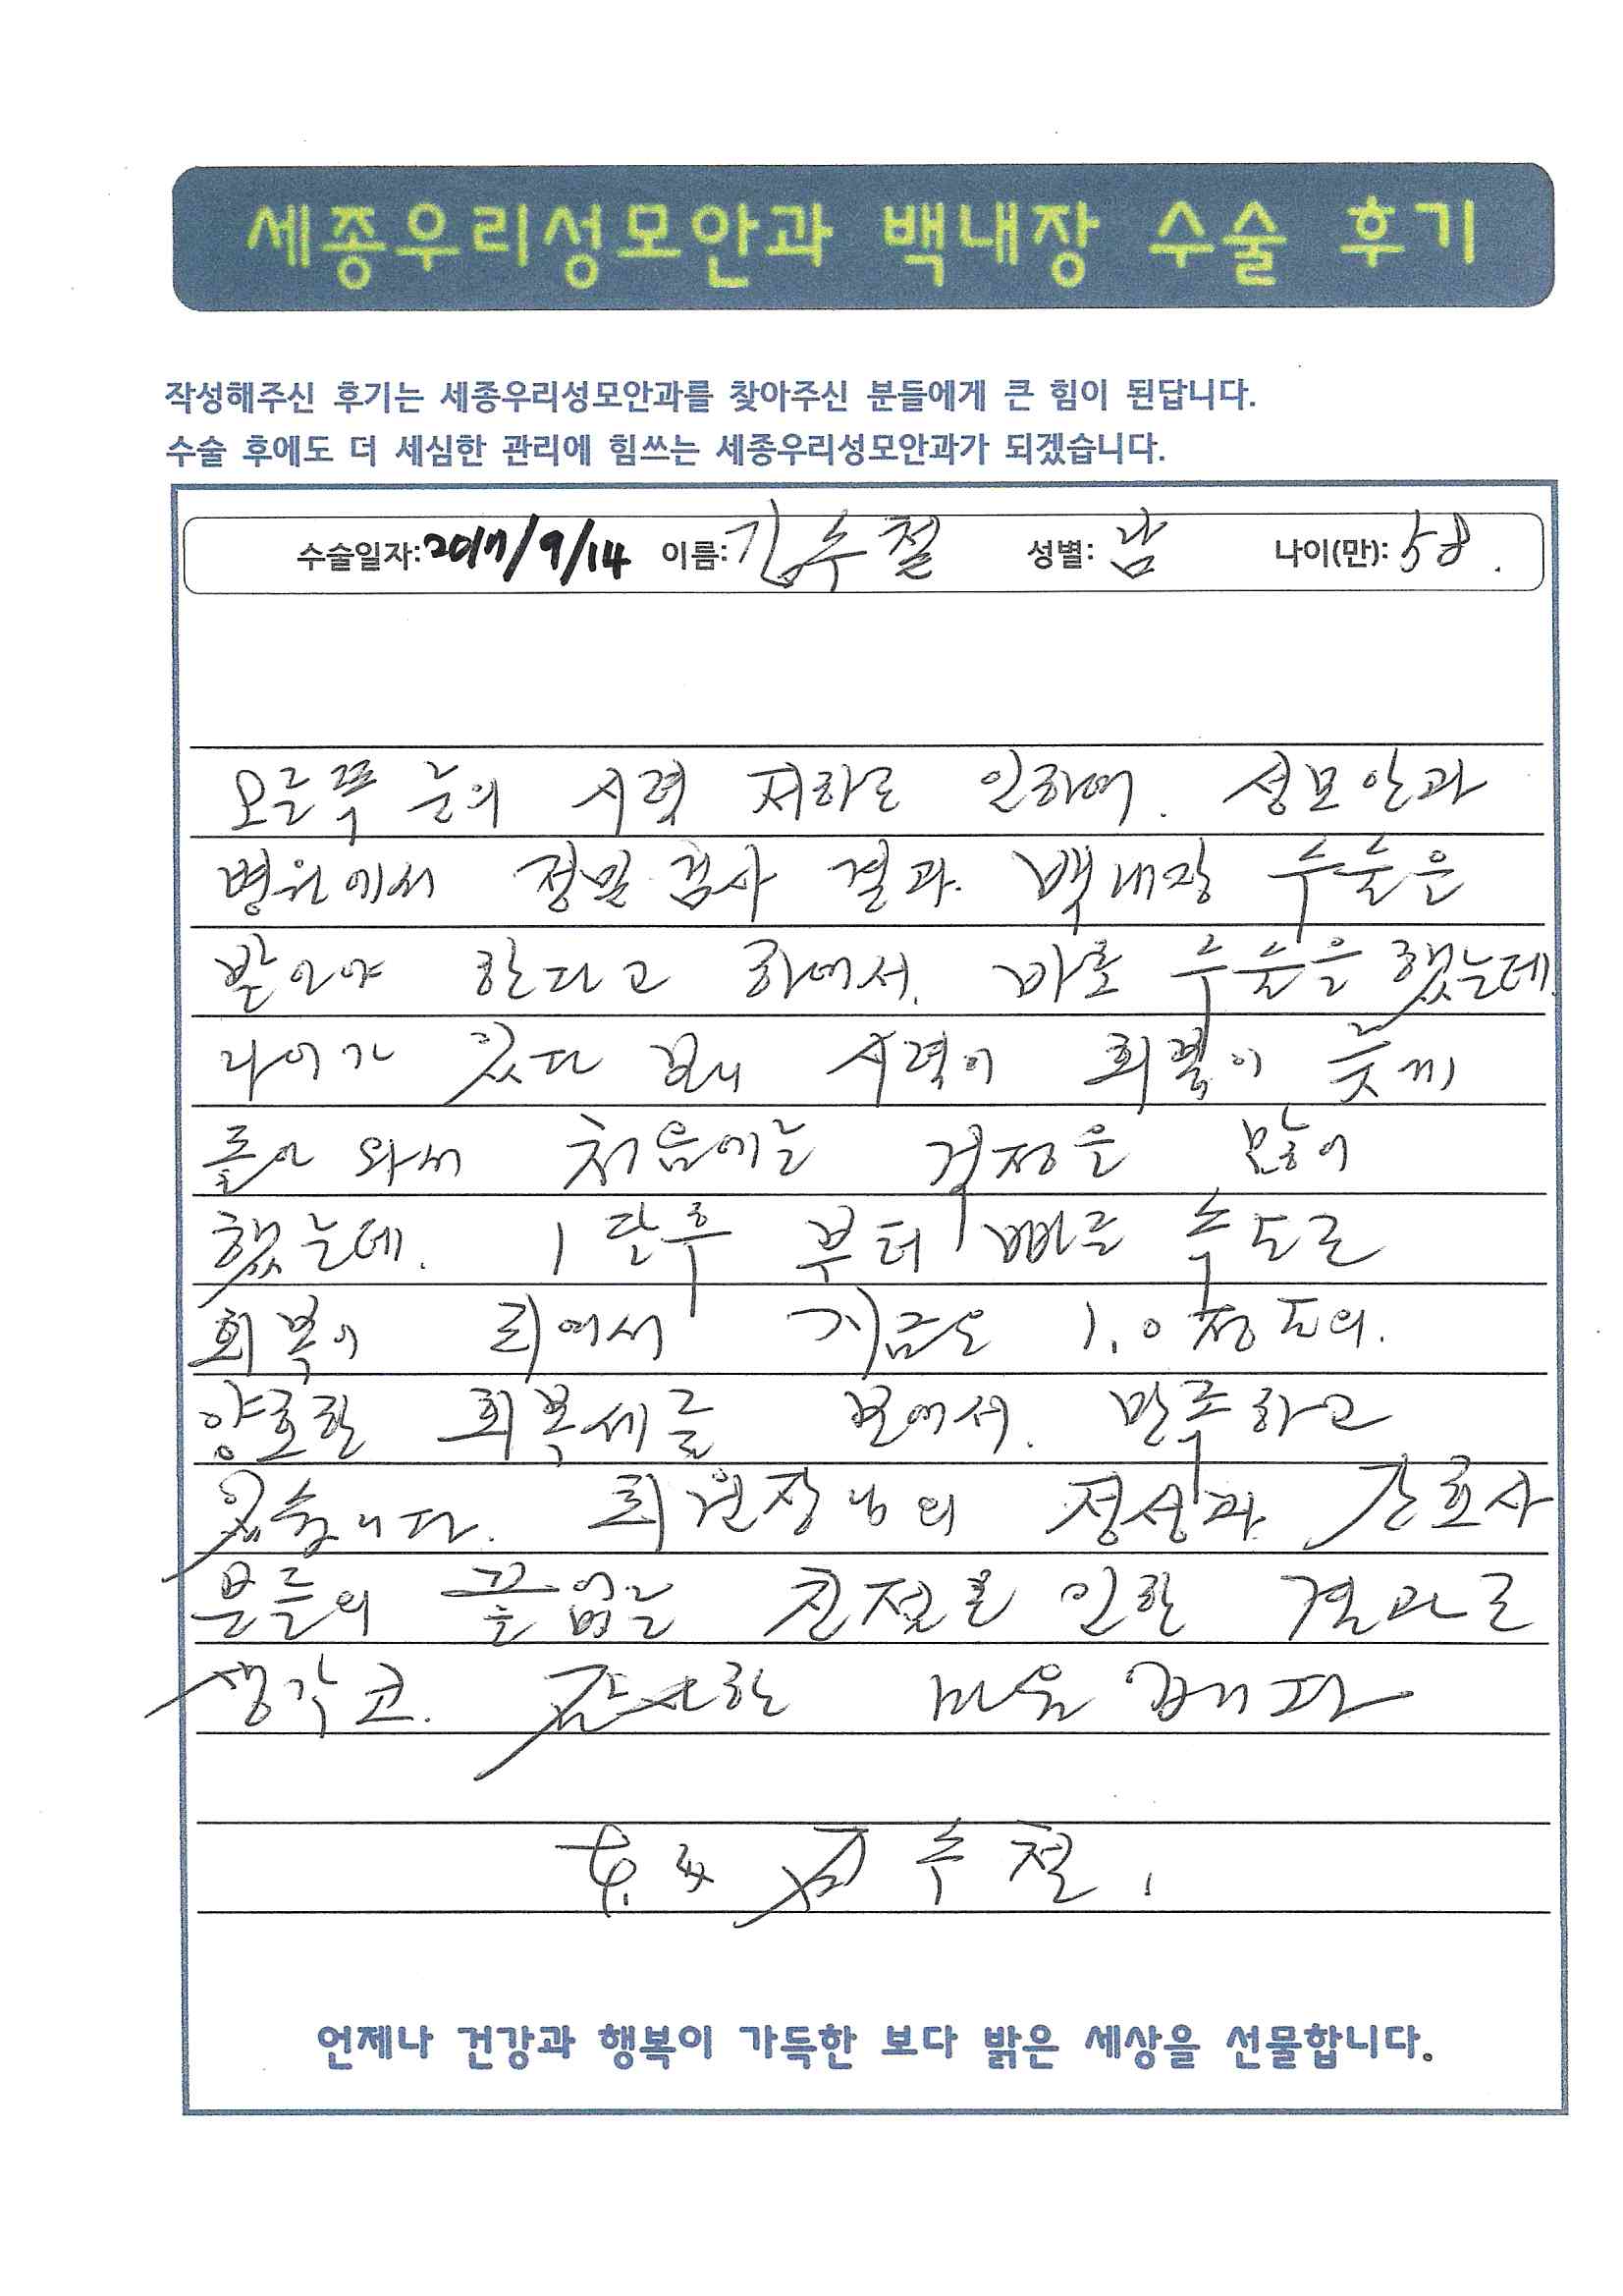 세종우리성모안과 백내장 수술 후기
작성해주신 후기는 세종우리성모안과를 찾아주신 분들에게 큰 힘이 된답니다.
수술 후에도 더 세심한 관리에 힘쓰는 세종우리성모안과가 되겠습니다.
수술일자: 2017/9/14 이름: 김수철 성별: 남 나이(만): 58.
오른쪽 눈의 시력 저하로 인하여. 성모안과
병원에서 정밀검사 결과. 백내장 수술은
받아야 한다고 하여서. 바로 수술을 했는데.
나이가 있다 보니 시력이 회복이 늦게
돌아 와서 처음에는 걱정을 많이
했는데. 1달후 부터 빠른 속도로
회복이 되여서 지금은 1.0정도의.
양호한 회복세를 보여서. 만족하고
있습니다. 최원장님의 정성과 간호사
분들의 끝없는 친절로 인한 결과로
생각코. 감사한 마음 입니다
김수철.
언제나 건강과 행복이 가득한 보다 밝은 세상을 선물합니다.